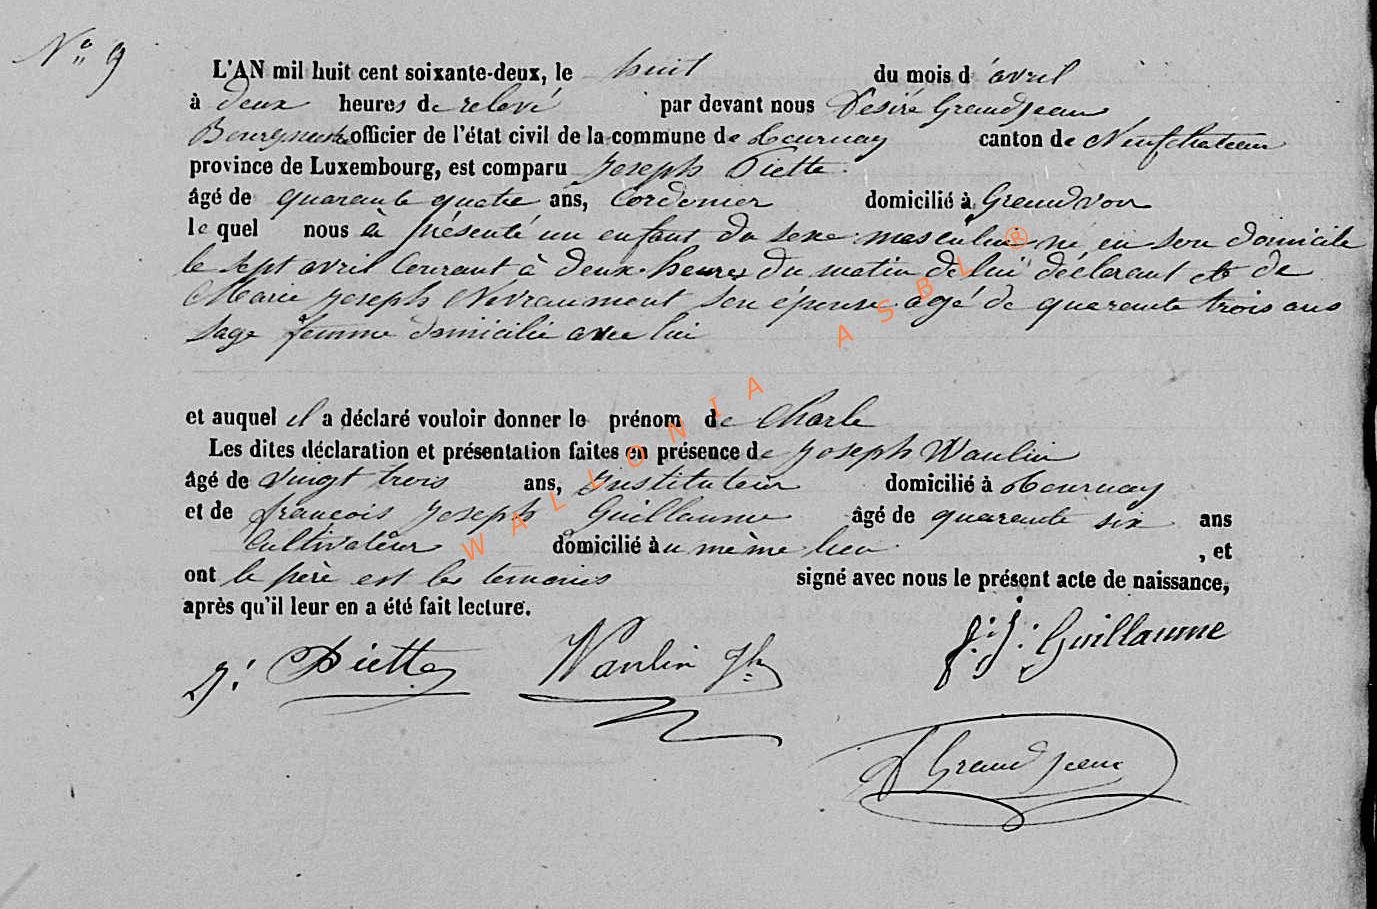 N° 9
L'AN mil huit cent soixante-deux, le huit du mois d'avril
à deux heures de relevé par devant nous Desiré Grandjean
Bourgmestre officier de l'état civil de la commune de Tournay canton de Neufchateau
province de Luxembourg, est comparu Joseph Piette.
âgé de quarante quatre ans, Cordonier domicilié à Grandvoir
lequel nous à présenté un enfant du sexe masculin né en son domicile
le sept avril Courant à deux heures du matin de lui déclarant et de
Marie Joseph Névraumont son épouse agé de quarante trois ans
sage femme domicilié avec lui
et auquel il a déclaré vouloir donner le prénom de Charle
Les dites déclaration et présentation faites en présence de Joseph Waulin
âgé de vingt trois ans, Instituteur domicilié à Tournay
et de françois Joseph Guillaume âgé de quarante six ans
Cultivateur domicilié au même lieu , et
ont le père est les temoins signé avec nous le présent acte de naissance,
après qu'il leur en a été fait lecture.
J. Piette Waulin Jh F. J. Guillaume
D Grandjean
WALLONIA ASBL ®